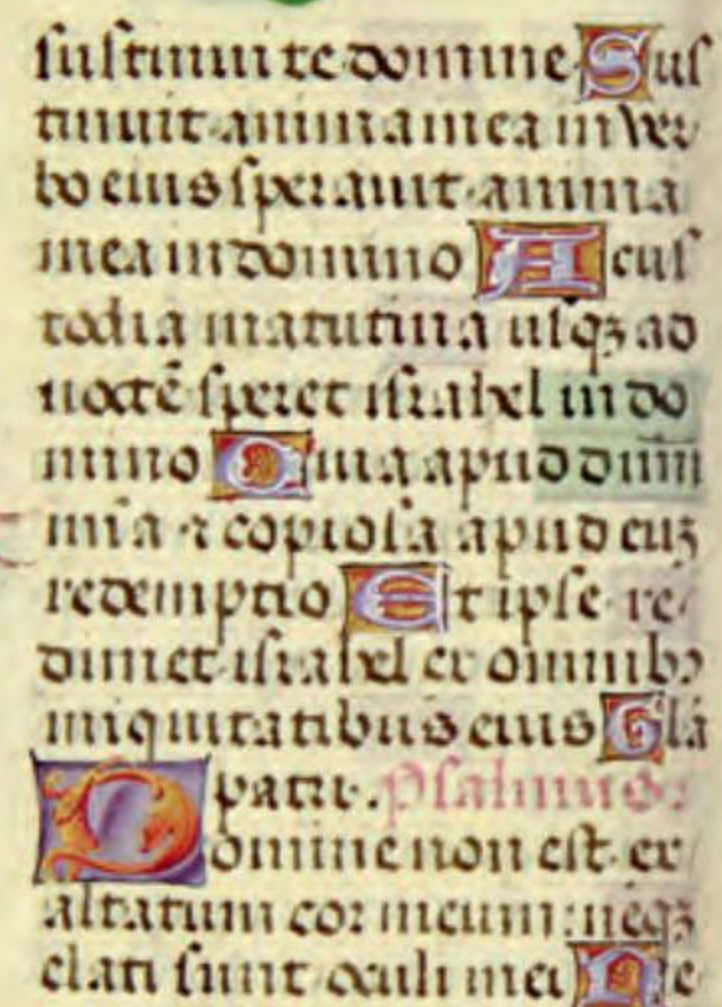 sustinui te domine Sus
tinuit anima mea in ver
bo eius speravit anima
mea in domino A cus
todia matutina usqȝ ad
noctē speret israhel in do
mino Quia apud dnm
mia ⁊ copiosa apud euȝ
redemptio Et ipse re
dimet israhel ex omnibꝰ
iniquitatibus eius Gła
patri. Psalmus:
Domine non est ex
altatum cor meum: neqȝ
elati sunt oculi mei Ne